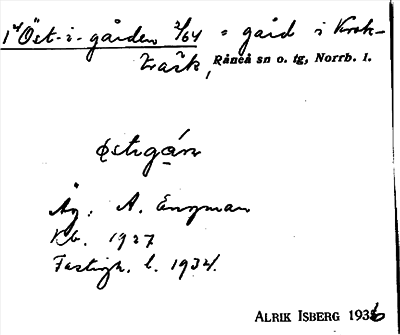 1 4 Öst-i-gården 2/64 = gård i Krok-
träsk, Råneå sn o. tg, Norrb. l.
østigárn
Äg. A. Engman
Kb. 1927
Fastigh. l. 1934.
ALRIK ISBERG 1936